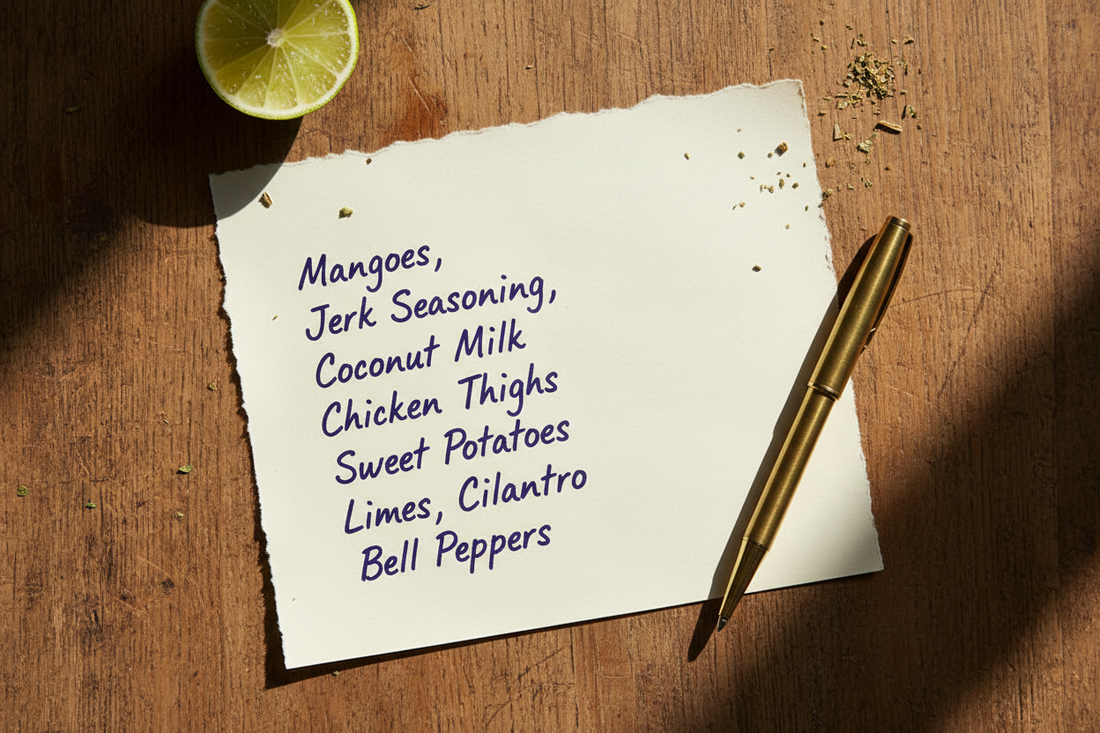 Mangoes,
Jerk Seasoning,
Coconut Milk
Chicken Thighs
Sweet Potatoes
Limes, Cilantro
Bell Peppers